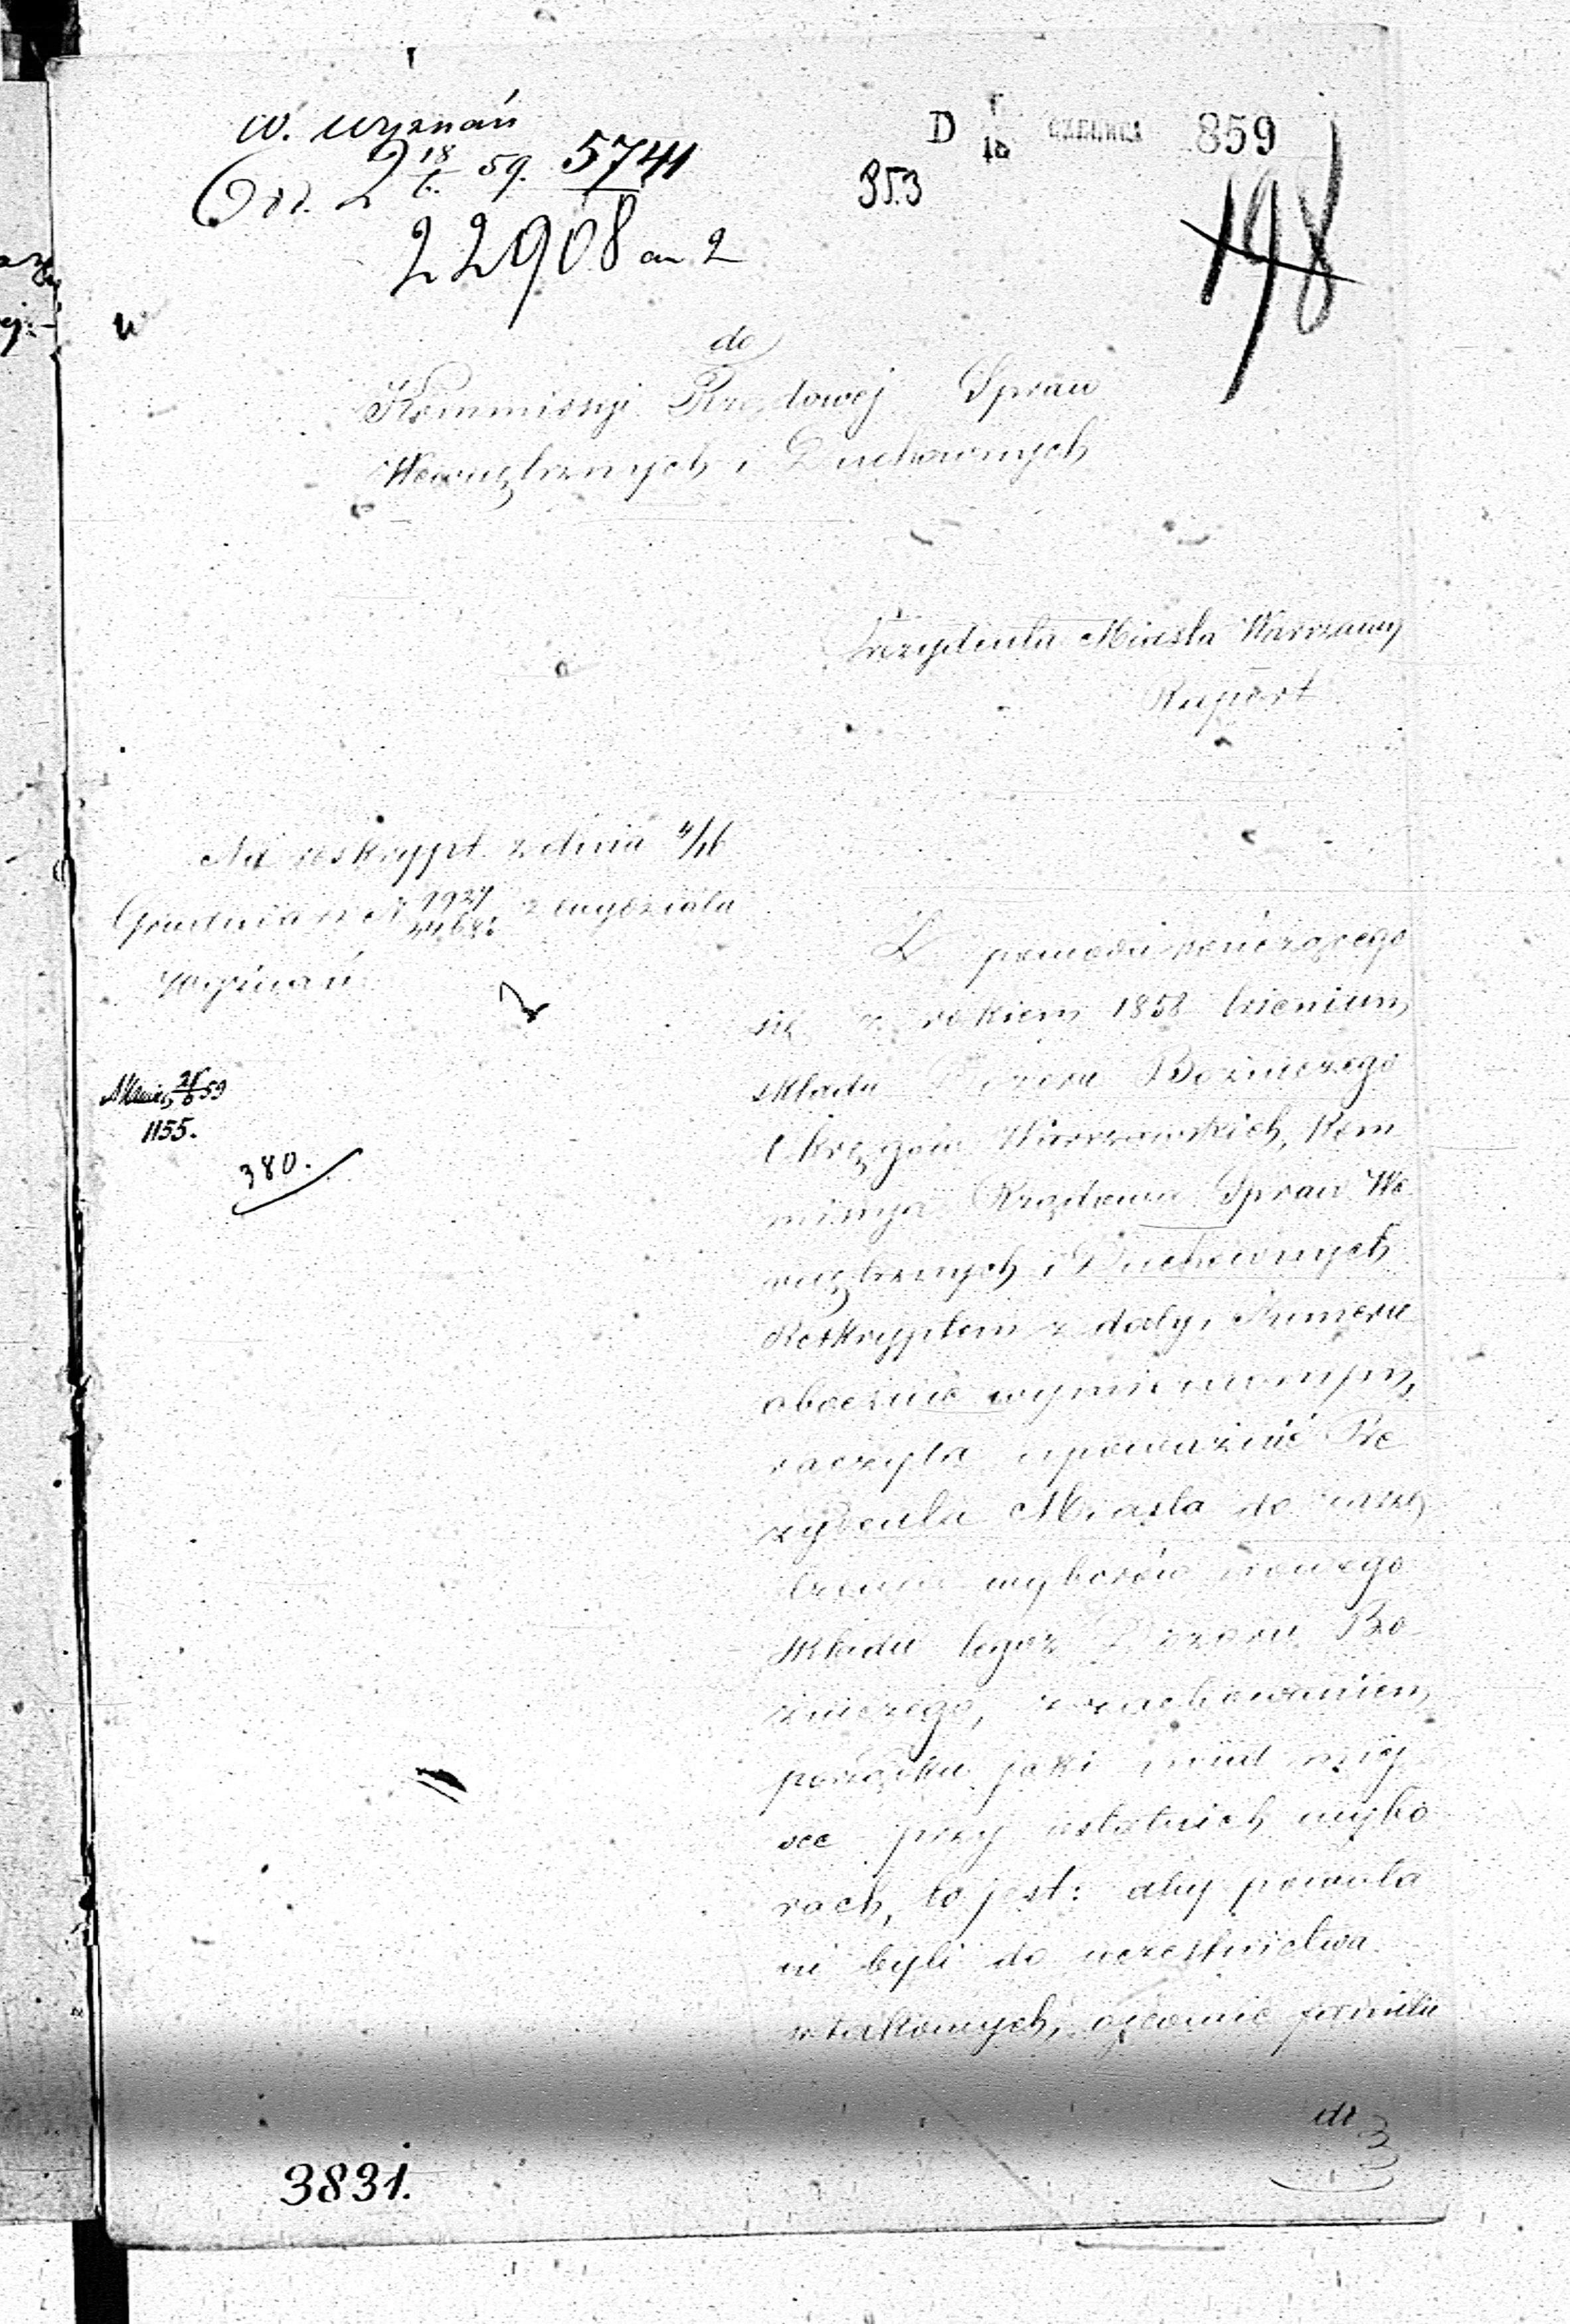 W. Wyznań
Od. 2 18/6. 59. 5741
22908 an 2
D CZERWCA 859
353
198
do
Kommissyi Rządowej Spraw
Wewnętrznych i Duchownych
Prezydenta Miasta Warszawy
Raport
Na reskrypt z dnia 4/16
Grudnia r. z. N. z wydziału
Wyznań
59
1155.
380.
Z powodu kończącego
się z rokiem 1858 trienium
składu Dozoru Bożniczego
Okręgów Warszawskich, Kom
missya Rządowa Spraw We
wnętrznych i Duchownych
Reskryptem z daty i Numeru
obocznie wymienionym,
raczyła upoważnić Pre
zydenta Miasta do zarzą
dzenia wyborów nowego
składu tegoż Dozoru Bo
żniczego, z zachowaniem
porządku jaki miał miej
sce przy ostatnich wybo
rach, to jest: aby powoła
ni byli do uczestnictwa
w takowych, ojcowie familii
do
3831.